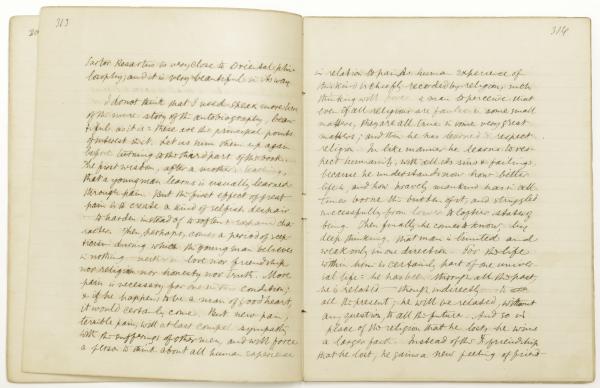 313
Sartor Resartus is very close to Oriental phi-
losophy; and it is very beautiful in its way.
I do not think that I need speak more here
of the mere story of the autobiography, beau-
tiful as it is: these are the principal points
of interest in it. Let us sum them up again
before turning to the third part of the book.
The first wisdom, after a mother's teaching,
that a young man learns is usually learned
through pain. But the first effect of great
pain is to create a kind of selfish despair
to harden instead of to soften & expand cha-
racter. Then, perhaps, comes a period of scep-
ticism during which the young man believes
in nothing neither in love nor friendship
nor religion nor honesty nor truth. More
pain is necessary for one in condition;
& if he happens to be a man of good heart,
it would certainly come. But new pain,
terrible pain, will at last compel sympathy
with the sufferings of other men, and will force
a person to think about all human experience
314
in relation to pain. As human experience of
this kind is chiefly recorded by religion, such
thinking will force a man to perceive that
even if all religions are false in some small
matters, they are all true in some very great
matters; and thus he has learned to respect
religion. In like manner he learns to res-
pect humanity, with all its sins & failings,
because he understands now how bitter
life is, and how bravely mankind has in all
times borne the burden of it, and struggled
successfully from lower to loftier states of
being. Then finally he comes to know, by
deep thinking, that man is limited and
weak only in one direction. For the life
within him is certainly part of the univer-
sal life: he has been through all the past,
he is related though indirectly to
all the present; he will be related, without
any question to all the future. And so in
place of the religion that he lost, he wins
a larger faith. Instead of the friendship
that he lost, he gains a new feeling of friend-